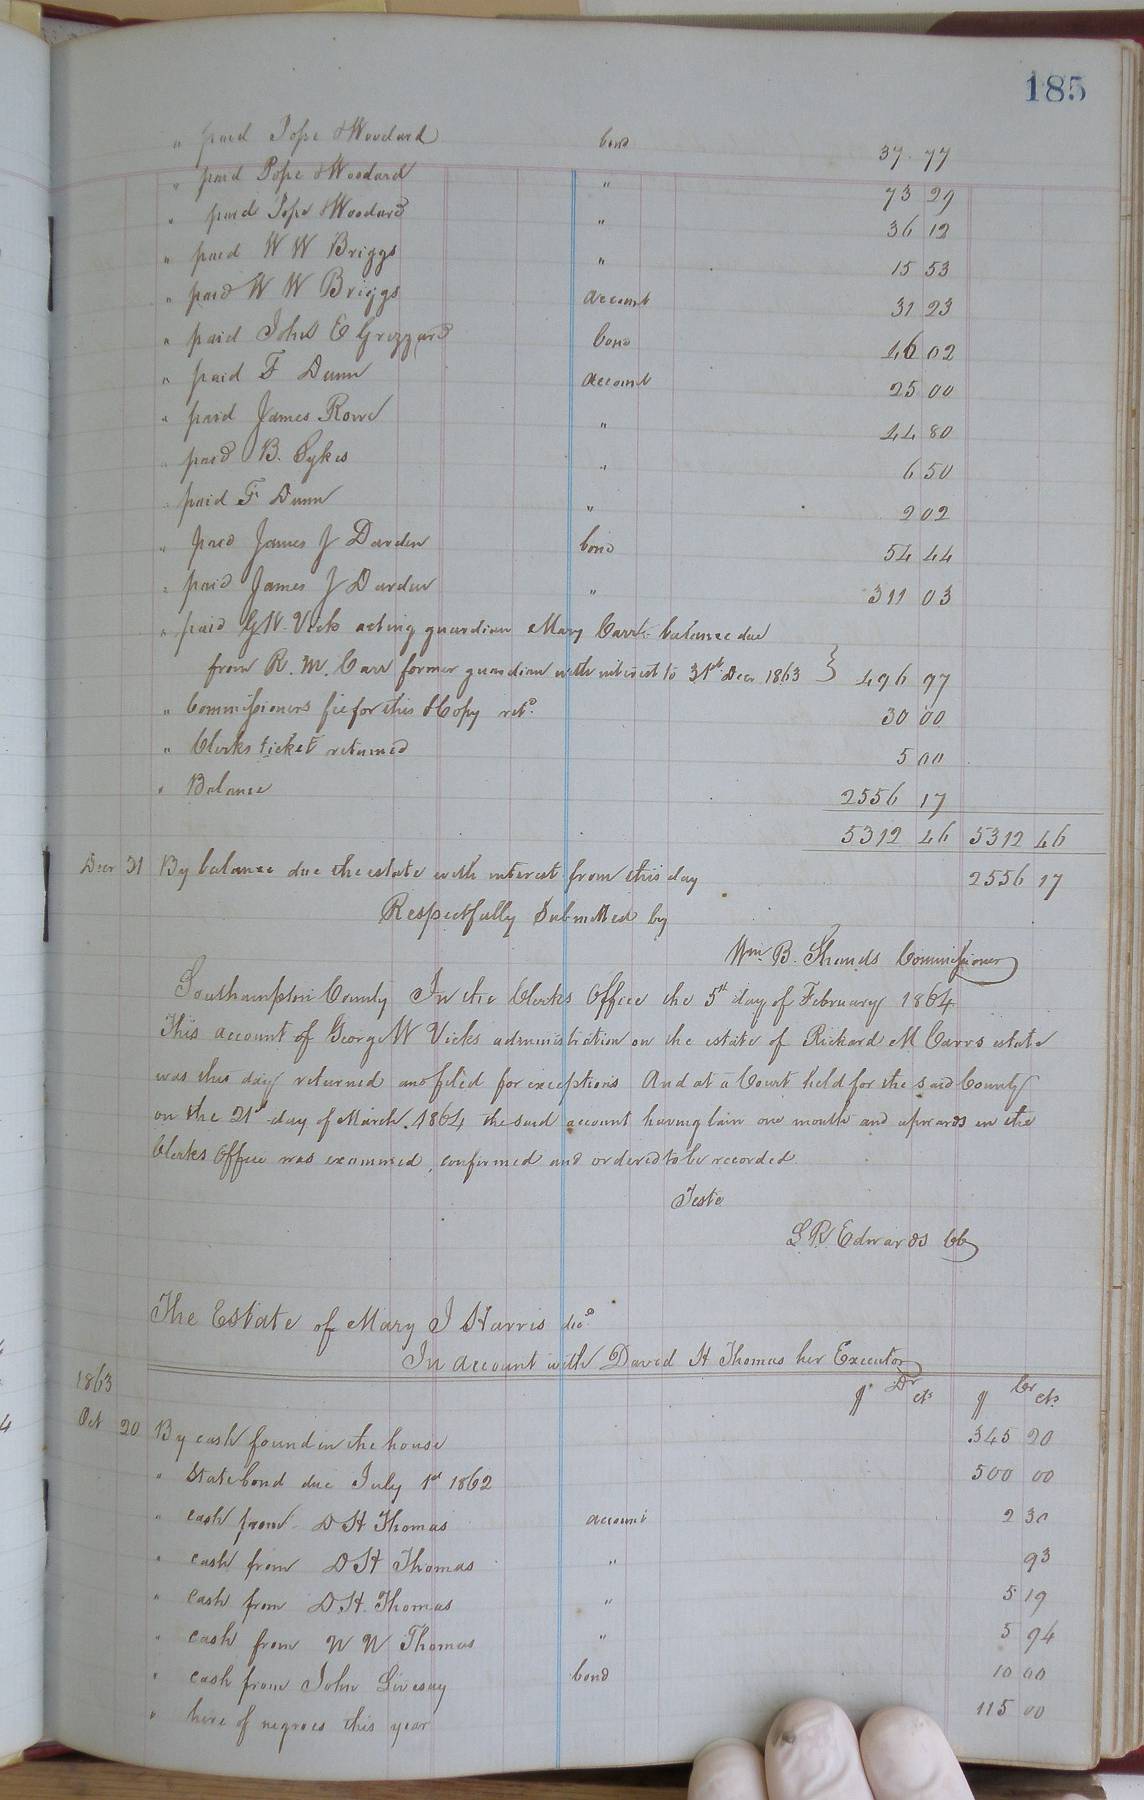 185
" paid Pope & Woodard bond 37 77
" paid Pope & Woodard " 73 29
" paid Pope & Woodard " 36 12
" paid W W Briggs " 15 53
" paid W W Briggs account 31 23
" paid John E Grizzard bond 46 02
" paid F Dunn account 25 00
" paid James Rowe " 44 80
" paid B. Sykes " 6 50
" paid F Dunn " 2 02
" paid James J Darden bond 54 44
" paid James J Darden " 311 03
" paid G W Vick acting guardian Mary Carr balance due
from R. M. Carr former guardian with interest to 31st Decr 1863 } 496 97
" Commissioners fee for this & Copy retd 30 00
" Clerks ticket returned 5 00
" Balance 2556 17
5312 46 5312 46
Decr 31 By balance due the estate with interest from this day 2556 17
Respectfully Submitted by
Wm B. Shands Commissioner
Southampton County In the Clerks Office the 5th day of February 1864
This account of George W Vicks administration on the estate of Richard M Carrs estate
was this day returned and filed for exceptions And at a Court held for the said County
on the 21st day of March 1864 the said account having lain one month and upwards in the
Clerks Office was examined, confirmed and ordered to be recorded
Teste
L R Edwards CC
The Estate of Mary J Harris decd
In account with David H Thomas her Executor
1863 $ Dr cts $ Cr cts
Oct 20 By cash found in the house 345 20
" State bond due July 1st 1862 500 00
" cash from D H Thomas account 2 30
" cash from D H Thomas " 93
" cash from D. H. Thomas " 5 19
" cash from W W Thomas " 5 94
" cash from John Livesay bond 10 00
" hire of negroes this year 115 00